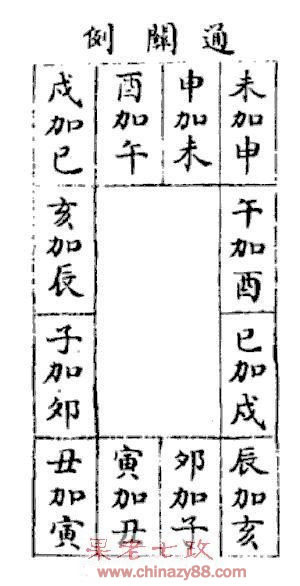 通關例
未加申
申加未
酉加午
戌加巳
午加酉
亥加辰
巳加戌
子加卯
辰加亥
卯加子
寅加丑
丑加寅
果老七政
www.chinazy88.com